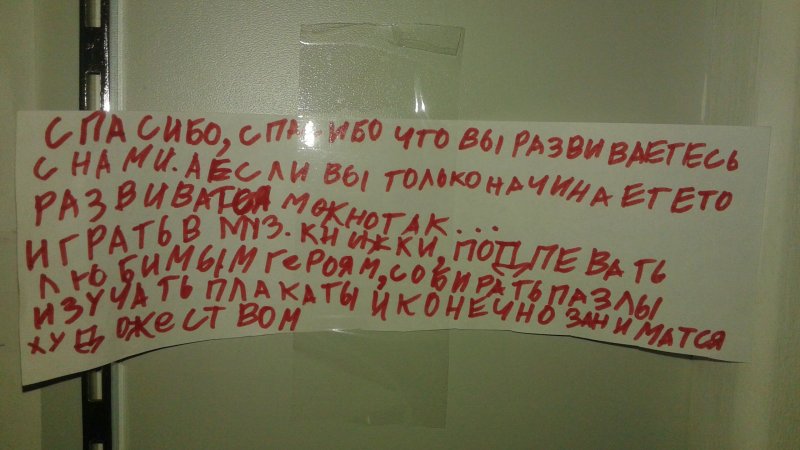 СПАСИБО, СПАСИБО ЧТО ВЫ РАЗВИВАЕТЕСЬ
С НАМИ. А ЕСЛИ ВЫ ТОЛЬКО НАЧИНАЕТЕ ТО
РАЗВИВАТСЯ МОЖНО ТАК...
ИГРАТЬ В МУЗ. КНИЖКИ, ПОДПЕВАТЬ
ЛЮБИМЫМ ГЕРОЯМ, СОБИРАТЬ ПАЗЛЫ
ИЗУЧАТЬ ПЛАКАТЫ И КОНЕЧНО ЗАНИМАТСЯ
ХУДОЖЕСТВОМ